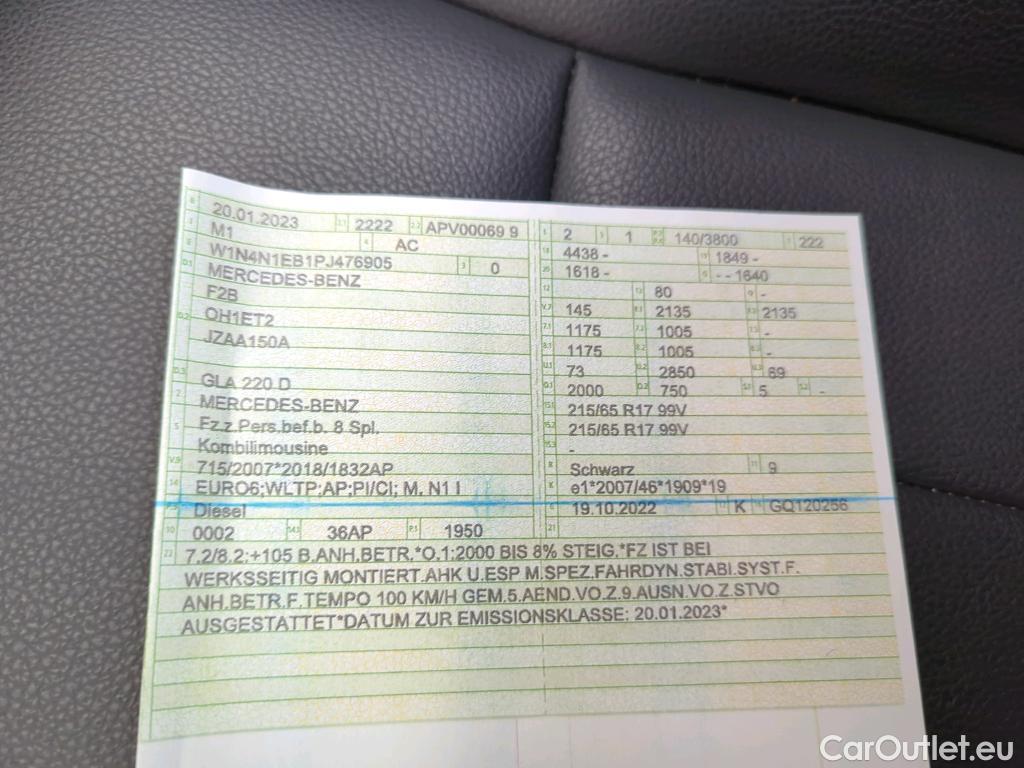 20.01.2023 2222 APV00069 9
M1 AC
W1N4N1EB1PJ476905 0
MERCEDES-BENZ
F2B
OH1ET2
JZAA150A
GLA 220 D
MERCEDES-BENZ
Fz.z.Pers.bef.b. 8 Spl.
Kombilimousine
715/2007*2018/1832AP
EURO6;WLTP;AP;PI/CI; M, N1 I
Diesel
0002 36AP 1950
2 1 140/3800 222
4438 - 1849 -
1618 - - - 1640
80 -
145 2135 2135
1175 1005 -
1175 1005 -
73 2850 69
2000 750 5 -
215/65 R17 99V
215/65 R17 99V
-
Schwarz 9
e1*2007/46*1909*19
19.10.2022 K GQ120256
7.2/8.2:+105 B.ANH.BETR.*O.1:2000 BIS 8% STEIG.*FZ IST BEI
WERKSSEITIG MONTIERT.AHK U.ESP M.SPEZ.FAHRDYN.STABI.SYST.F.
ANH.BETR.F.TEMPO 100 KM/H GEM.5.AEND.VO.Z.9.AUSN.VO.Z.STVO
AUSGESTATTET*DATUM ZUR EMISSIONSKLASSE: 20.01.2023*
CarOutlet.eu